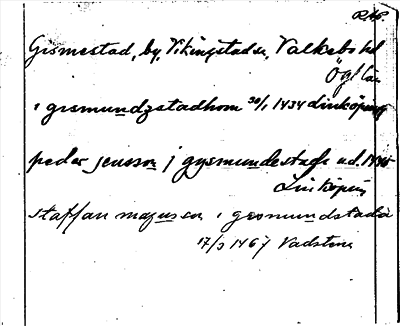 RAP.
Gismestad, by, Vikingstad sn, Valkebo hd
Ögl län
i gismundzstadhom 30/1 1434 Linköping
peder jensson j gysmundestadh
Linköping
staffan magnsson i gosmundstada
17/3 1467 Vadstena